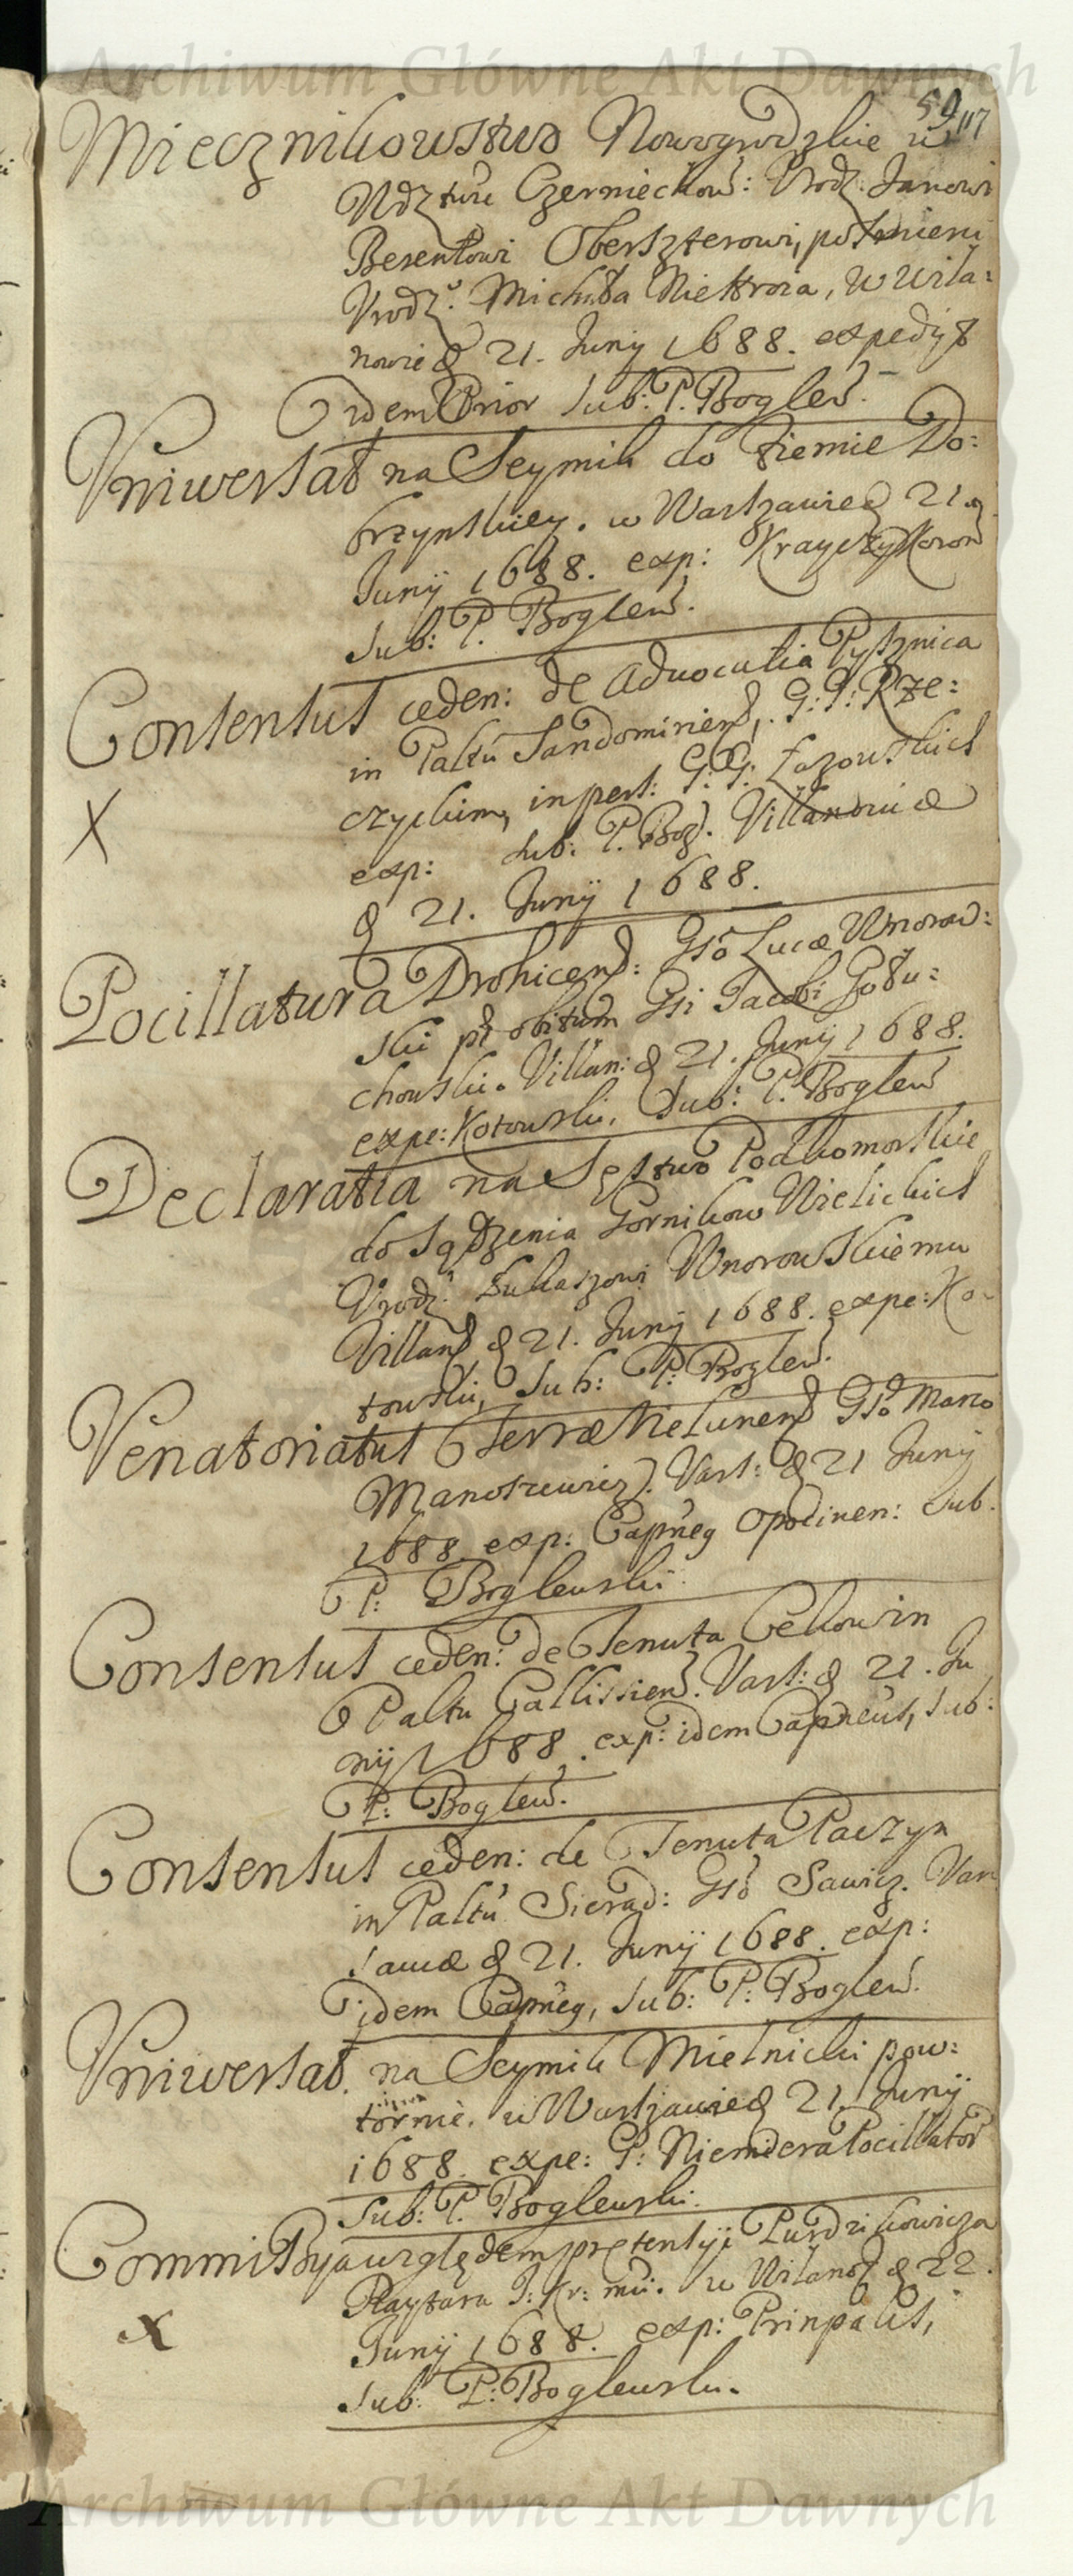 Archiwum Główne Akt Dawnych
59 117
Miecznikowstwo Nowogrodzkie w
Wdztwie Czerniechow: Vrodz: Janowi
Berentowi Oberszterowi, po śmierci
Vrodz: Michała w Wila:
nowie d 21. Junij 1688. expedijt
Idem Prior Sub: P. Boglew.
Vniwersał na Seymik do Ziemie Do:
brzynskiey. w Warszawie d 21.
Junij 1688. exp: Krayczy Koron
Sub: P. Boglew.
Consensus ceden: de Advocatia Pysznica
in Paltu Sandomiriens, G: G: Rze:
czyckim, in pers: G: G: Łazowskich
exp: Sub: P. Bog. Villanoviæ
X
d 21. Junij 1688.
Pocillatura Drohicens: Gso Lucæ Wnorow:
ski pt obitum Gsi Jacobi Gołu:
chowski. Villan: d 21. Junij 1688.
expe: Kotowski, Sub: P. Boglew
Declaratia na Sęstwo Podkomorskie
do Sądzenia Gornikow Wielickich
Vrodz: Łukaszowi Wnorowskiemu
Villans d 21. Junij 1688. expe: Ko-
towski, Sub: P: Boglew.
Venatoriatus Terræ Wielunens Gso Marco
Vars: d 21 Junij
1688 exp: Capneg Opocinen: Sub.
P: Boglewski.
Consensus ceden: de Tenuta Cekow in
Paltu Callissiens. Vars: d 21. Ju
nij 1688. exp: idem Capneus, Sub:
P: Boglew.
Consensus ceden: de Tenuta Paczyn
in Paltu Sierad: Gso Sawicz. Var
saviæ d 21. Junij 1688. exp:
idem Capneg, Sub: P: Boglew.
Vniwersał. na Seymik Mielnicki pow:
tornie. w Warszawie d 21. Junij
1688. expe: P: Niemiera Pocillator
Sub: P. Boglewski.
Commissyja względem pretensyji Purdzikowicza
Raytara J: Kr: mci. w Wilanos d 22.
X
Junij 1688. exp: Prinpalis,
Sub: P: Boglewski.
Archiwum Główne Akt Dawnych